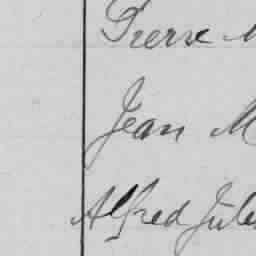 Pierre M
Jean M
Alfred Jules